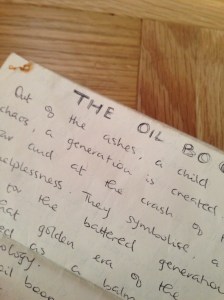 THE OIL BO
Out of the ashes, a child
chaos, a generation is created
and at the crash of
elplessness. They symbolise, a
for the battered generation
at golden era of the
ed as a balm
ology.
oil boom